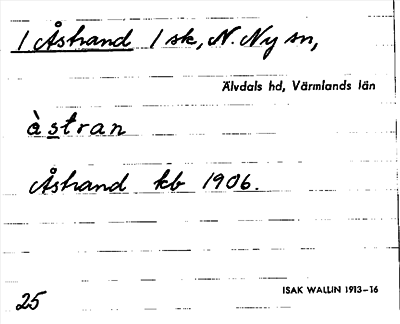 1 Åstrand 1 sk, N. Ny sn,
Älvdals hd, Värmlands län
àstran
Åstrand kb 1906.
ISAK WALLIN 1913-16
25